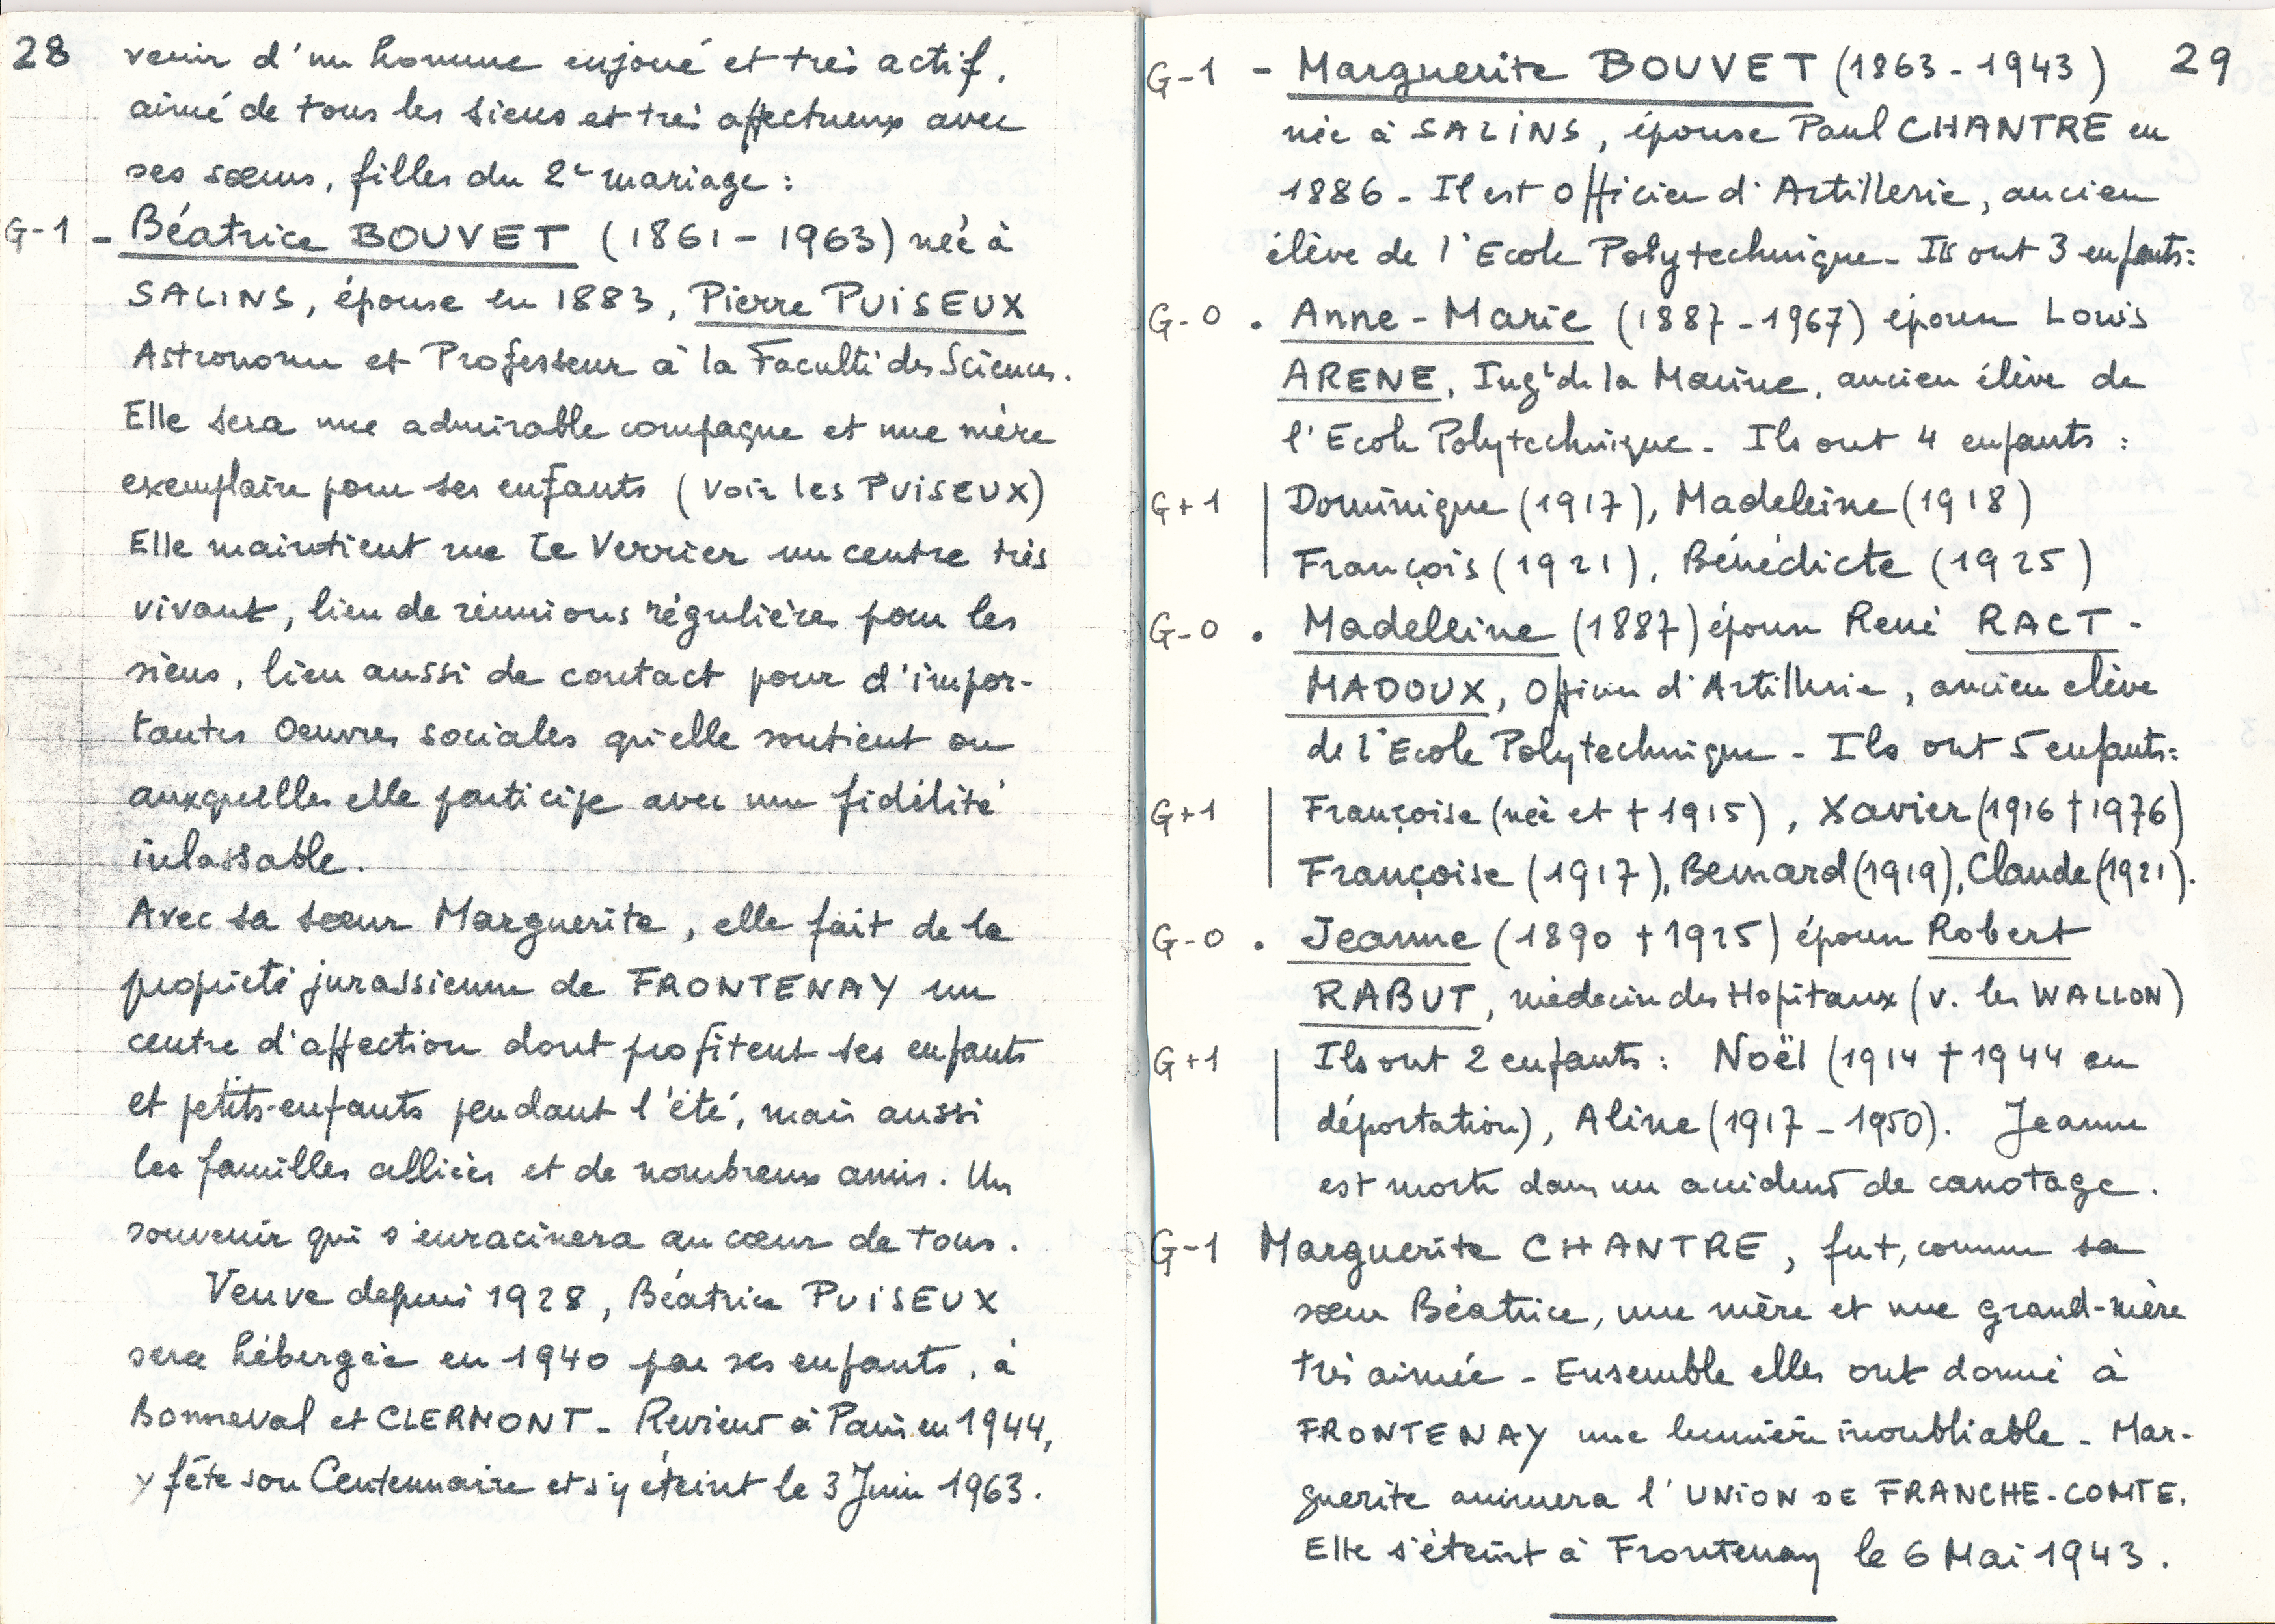 28
venir d'un homme enjoué et très actif,
aimé de tous les siens et très affectueux avec
ses sœurs, filles du 2e mariage :
G-1 - Béatrice BOUVET (1861 - 1963) née à
SALINS, épouse en 1883, Pierre PUISEUX
Astronome et Professeur à la Faculté des Sciences.
Elle sera une admirable compagne et une mère
exemplaire pour ses enfants (voir les PUISEUX)
Elle maintient rue Le Verrier un centre très
vivant, lieu de réunions régulières pour les
siens, lieu aussi de contact pour d'impor-
tantes Oeuvres sociales qu'elle soutient ou
auxquelles elle participe avec une fidélité
inlassable.
Avec sa sœur Marguerite, elle fait de la
propriété jurassienne de FRONTENAY un
centre d'affection dont profitent ses enfants
et petits-enfants pendant l'été, mais aussi
les familles alliées et de nombreux amis. Un
souvenir qui s'enracinera au cœur de tous.
Veuve depuis 1928, Béatrice PUISEUX
sera hébergée en 1940 par ses enfants, à
Bonneval et CLERMONT - Revient à Paris en 1944,
y fête son Centennaire et s'y éteint le 3 Juin 1963.
29
G-1 - Marguerite BOUVET (1863 - 1943)
née à SALINS, épouse Paul CHANTRE en
1886 - Il est Officier d'Artillerie, ancien
élève de l'Ecole Polytechnique - Ils ont 3 enfants:
G-0 . Anne-Marie (1887 - 1967) épouse Louis
ARENE, Ingr de la Marine, ancien élève de
l'Ecole Polytechnique - Ils ont 4 enfants :
G+1 | Dominique (1917), Madeleine (1918)
François (1921), Bénédicte (1925)
G-0 . Madeleine (1887) épouse René RACT-
MADOUX, Officier d'Artillerie, ancien élève
de l'Ecole Polytechnique - Ils ont 5 enfants:
G+1 | Françoise (née et † 1915), Xavier (1916 † 1976)
Françoise (1917), Bernard (1919), Claude (1921).
G-0 . Jeanne (1890 † 1925) épouse Robert
RABUT, médecin des Hopitaux (v. les WALLON)
G+1 | Ils ont 2 enfants : Noël (1914 † 1944 en
déportation), Aline (1917 - 1950). Jeanne
est morte dans un accident de canotage.
G-1 Marguerite CHANTRE, fut, comme sa
sœur Béatrice, une mère et une grand-mère
très aimée - Ensemble elles ont donné à
FRONTENAY une lumière inoubliable - Mar-
guerite animera l'UNION DE FRANCHE-COMTE.
Elle s'éteint à Frontenay le 6 Mai 1943.